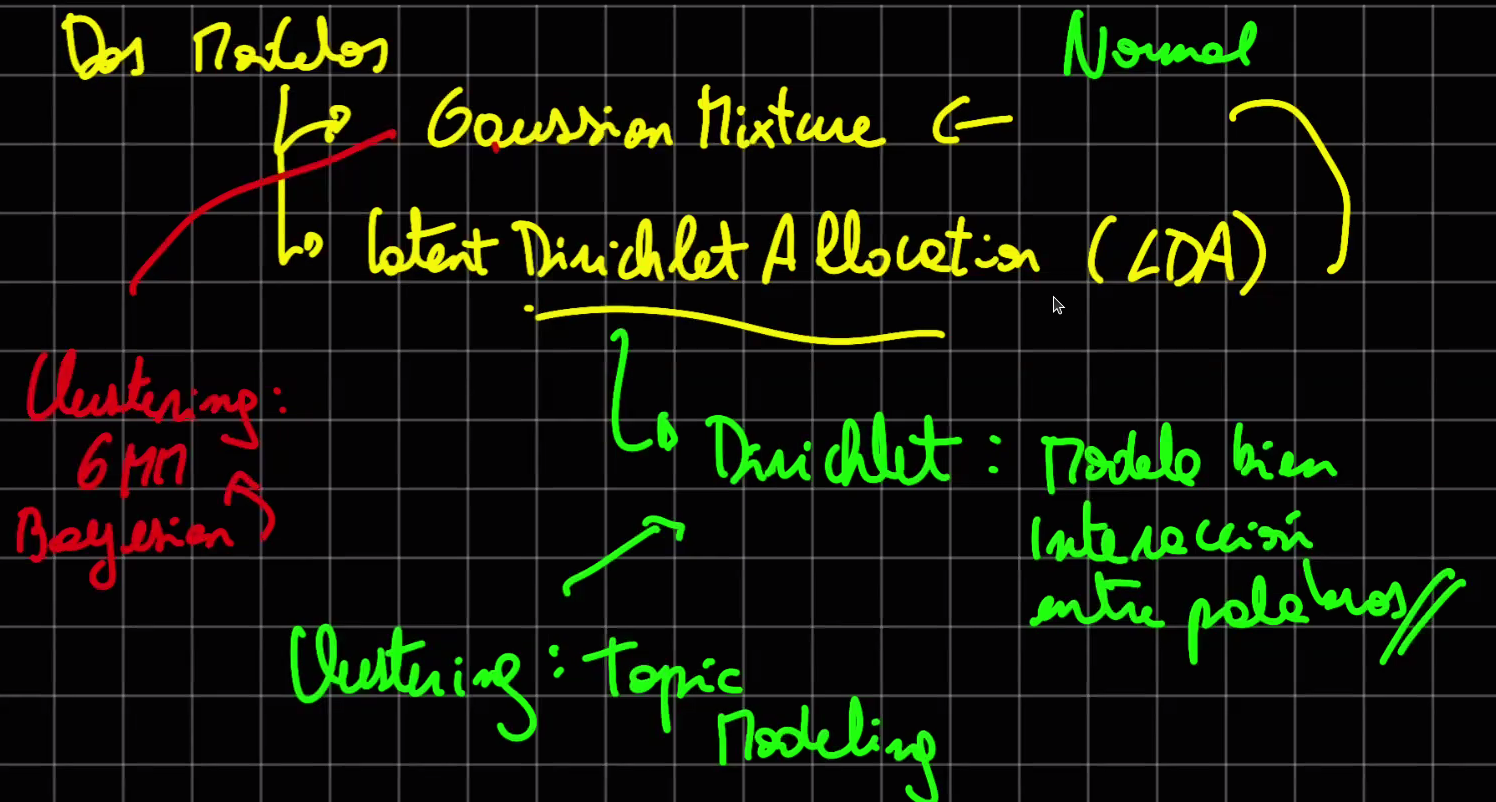 Dos Modelos
Normal
Gaussian Mixture
Latent Dirichlet Allocation (LDA)
Clustering:
GMM
Bayesian
Dirichlet: Modela bien
Interacción
entre palabras
Clustering: Topic
Modeling